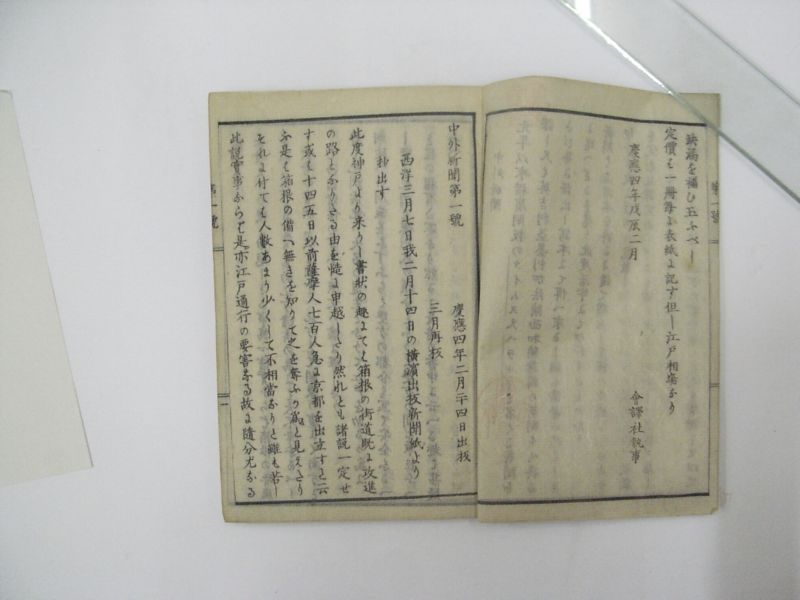 缺漏を補ひ玉ふべし
定價も一冊毎に表紙に記す但し江戸相塲なり
慶應四年戊辰二月
會譯社執事
中外新聞第一號
慶應四年二月二十四日出板
三月再板
西洋三月七日我二月十四日の横濱出板新聞紙より
抄出す
此度神戸より來りし書狀の趣にてハ箱根の街道既に改進
の路となりたる由を慥に申越したり然れとも諸説一定せ
す或ハ十四五日以前薩摩人七百人急に京都を出立すと云
ふ是も箱根の備へ無きを知りて之を奪ふり爲と見えたり
それに付ても人數あまり少くして不相當なりと雖も若し
此説實事ならハ是亦江戸通行の要害なる故に隨分尤なる
第一號